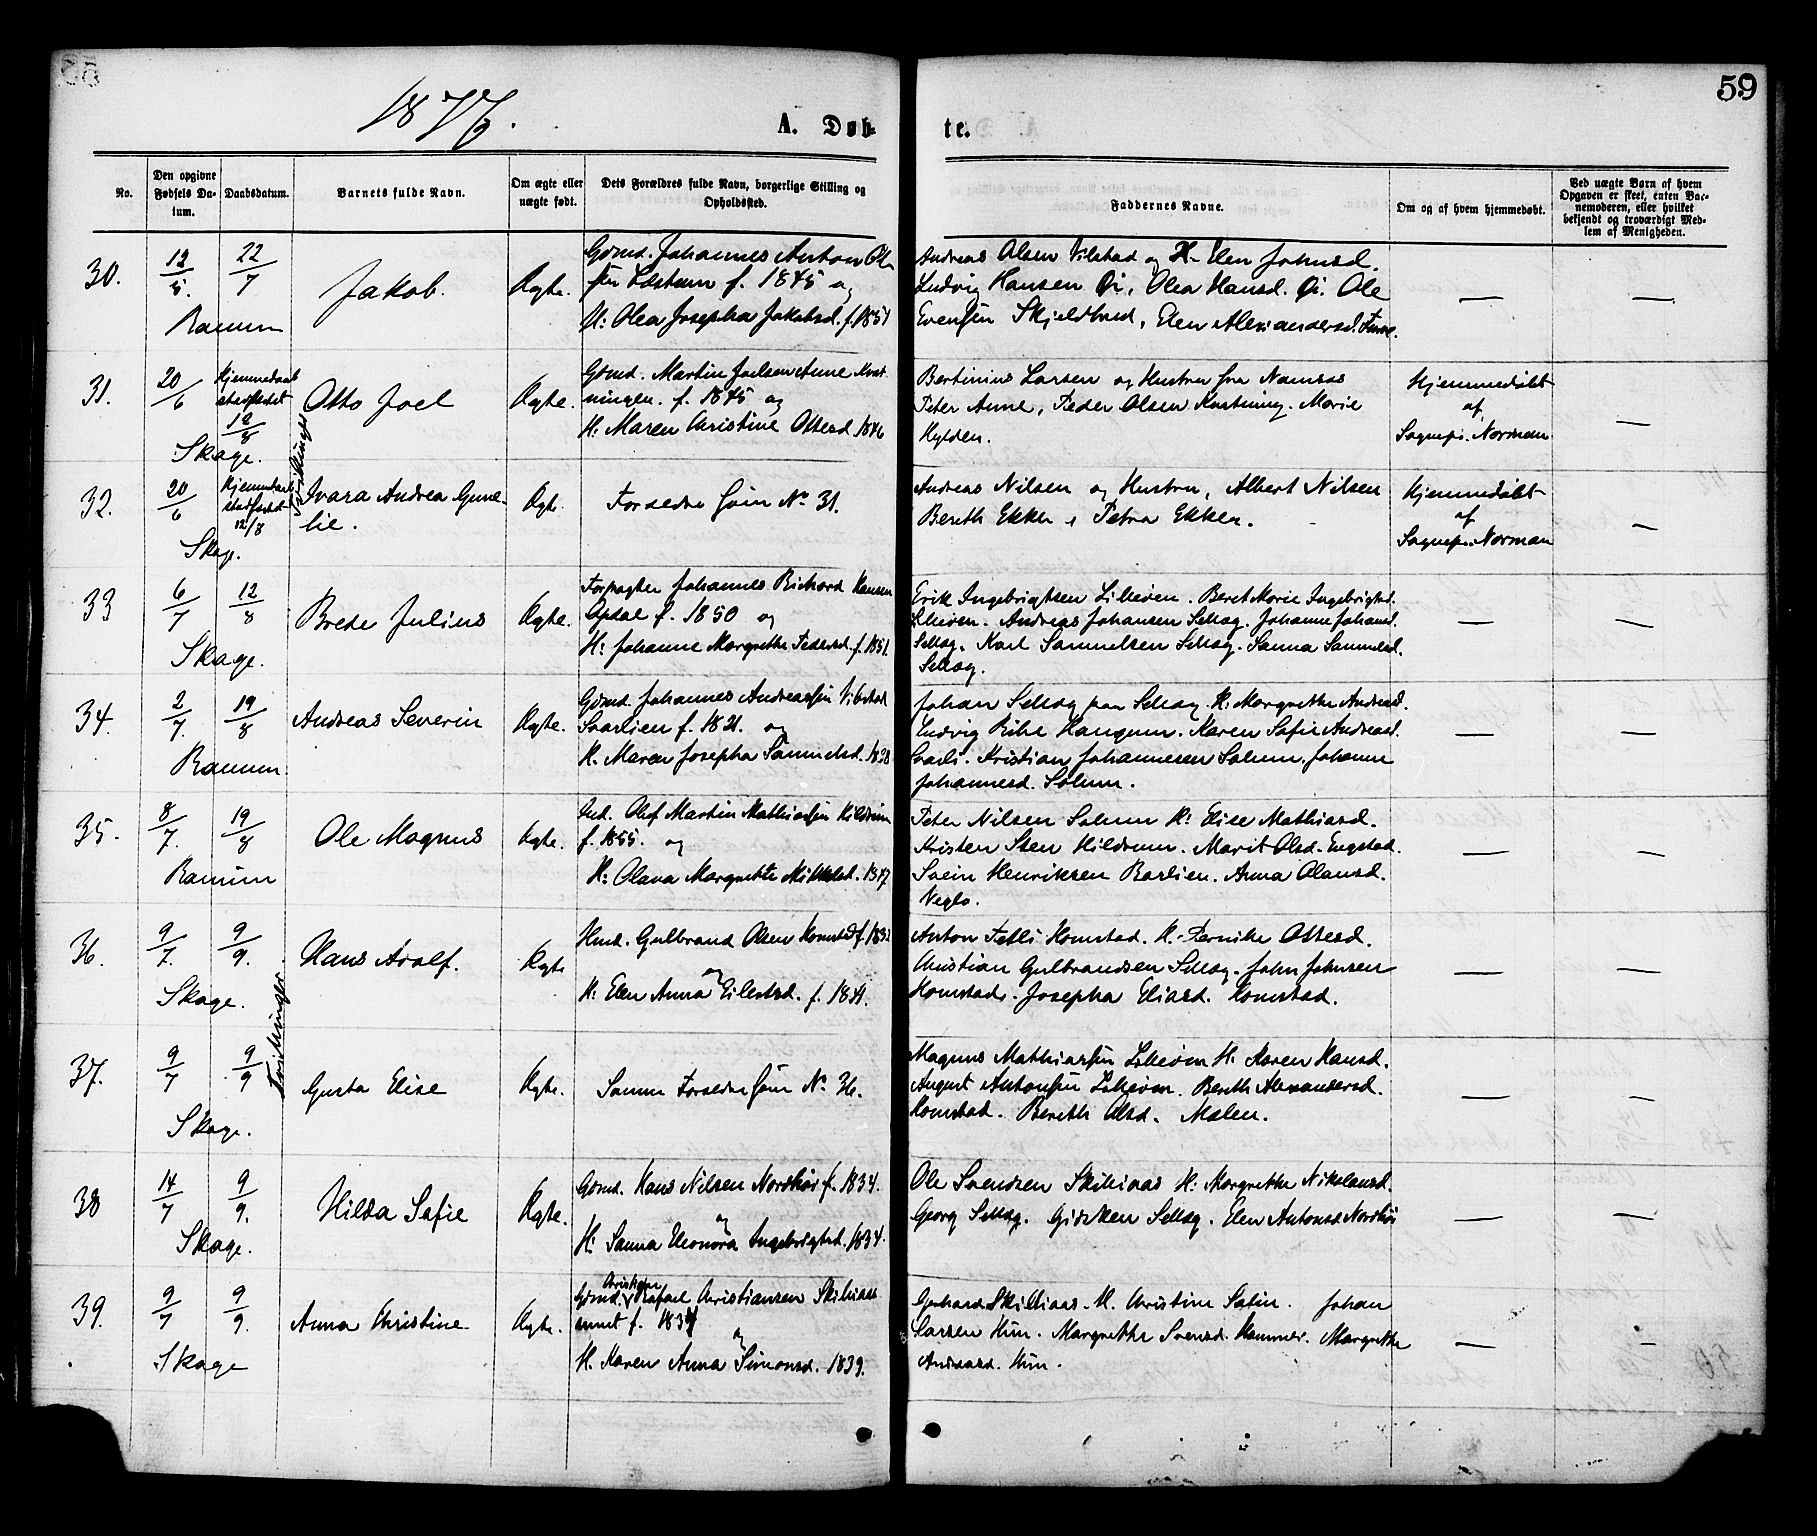 59
1877.
A. Døb-
te.
No.
Den opgivne Fødsels Da-
tum.
Daabsdatum.
Barnets fulde Navn.
Om ægte eller
uægte født.
Dets Forældres fulde Navn, borgerlige Stilling og
Opholdssted.
Faddernes Navne.
Om og af hvem hjemmedøbt.
Ved uægte Børn af hvem
Opgaven er skeet, enten Bar-
nemoderen, eller hvilket
bekjendt og troværdigt Med-
lem af Menigheden.
30. 12/5. 22/7
Ranum
Jakob.
Ægte.
Gdmd. Johannes Anton Ol-
sen f. 1845 og
H: Olea Josepha Jakobsd. f. 1851
Andreas Olsen Vibstad og H. Elen Johnsd.
Ludvig Hansen Øi, Olea Hansd. Øi. Ole
Evensen Skjeldbred, Elen Alexandersd.
—
—
31. 20/6 Hjemmedaab
stadfæstet
12/8
Skage.
Otto Joel
Ægte.
Gdmd. Martin Joelsen Aune Kvat-
ningen. f. 1845 og
H: Maren Christine Ottesd. 1846
Bertinius Larsen og Hustru fra Namsos
Peter Aune, Peder Olsen Kvatning. Marie
Hylden.
Hjemmedøbt
af
Sognepr. Norman
—
Tvillinger
32. 20/6 Hjemmedaab
stadfæstet
12/8
Skage.
Ivara Andrea Gune-
lie.
Ægte.
Forældre som No 31.
Andreas Nilsen og Hustru, Albert Nilsen
Bereth Ekker, Petra Ekker.
Hjemmedøbt
af
Sognepr. Norman
—
33 6/7 12/8
Skage.
Brede Julius
Ægte.
Forpagter Johannes Richard Hansen
Opdal f. 1850 og
H: Johanne Margrethe Pedersd. f. 1851.
Erik Ingebrigtsen Lilleøen. Beret Marie Ingebrigtsd.
Lilleøen. Andreas Johansen Selløg. Johanne Johansd.
Selløg. Karl Samuelsen Selløg. Sanna Samuelsd.
Selløg.
—
—
34. 2/7. 19/8
Ranum.
Andreas Severin
Ægte.
Gdmd. Johannes Andreassen Vibstad
f. 1821. og
H. Maren Josepha Samuelsd. 1828
Johan Selløg paa Selløg. H. Margrethe Andreasd.
Ludvig Haugum. Karen Sofie Andreasd.
Kristian Johannesen Solum. Johanne
Johannesd. Solum.
—
—
35. 8/7. 19/8
Ranum
Ole Magnus
Ægte.
Ind. Olof Martin Mathiassen Hildrum
f. 1855. og
H: Olava Margrethe Mikkelsd. 1847
Peter Nilsen Solum H: Elise Mathiasd.
Kristen Sten Hildrum. Marit Olsd. Engstad.
Svein Henriksen Barlien. Anna Olausd.
Veglo.
—
—
36. 9/7. 9/9.
Skage.
Hans Arolf.
Ægte
Hmd. Gulbrand Olsen Homstad f. 1832
og
H: Elen Anna Eilertsd. f. 1841.
Anton Homstad. H. Pernille Ottesd.
Christian Gulbrandsen Selløg. John Johnsen
Homstad. Josepha Eliasd. Homstad.
—
—
Tvillinger
37. 9/7 9/9
Skage.
Gusta Elise
Ægte.
Samme Forældre som No 36.
Magnus Mathiassen Lilleøen H: Karen Hansd.
August Antonsen Lilleøen. Bereth Alexandersd.
Homstad. Bereth Olsd. Moløn.
—
—
38 14/7 9/9.
Skage.
Hilda Sofie
Ægte.
Gdmd. Hans Nilsen Nordhøi f. 1834.
og
H: Sanna Eleonora Ingebrigtsd. 1834.
Ole Svendsen Skiliaas H: Margrethe Nikolausd.
Georg Selløg. Gidsken Selløg. Elen Antonsd. Nordhøi
—
—
39. 9/7 9/9.
Skage
Anna Christine
Ægte.
Gdmd. Christian Christiansen Skiliaas-
f. 1834
og
H. Karen Anna Simonsd. 1839.
Gerhard Skiliaas. H. Christine Satin. Johan
Larsen Hun. Margrethe Svensd. Hammer. Margrethe
Andreasd. Hun.
—
—